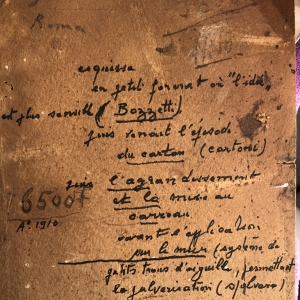 Roma
esquisse
en petit format où "l'idée
est plus sensible (Bozzetti)
puis venait l'épisode
du carton (cartoni)
6500f puis l'agrandissement
et la mise au
A° 1910 carreau
avant l'application
sur le mur (système de
petits trous d'aiguille, permettant
la pulvérisation (spolvero)